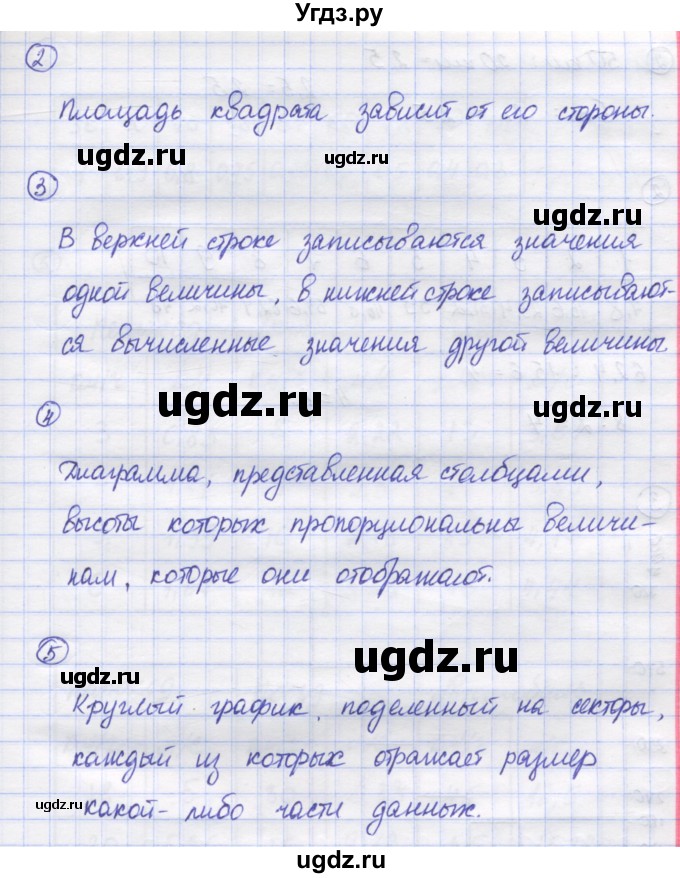 Угдз.ру
2
Площадь квадрата зависит от его стороны.
ugdz.ru
ugdz.ru
3
ugdz.ru
В верхней строке записываются значения
одной величины, в нижней строке записывают-
ся вычисленные значения другой величины
ugdz.ru
ugdz.ru
4
Диаграмма, представленная столбцами,
высоты которых пропорциональны величи-
нам, которые они отображают.
5
ugdz.ru
ugdz.ru
Круглый график, поделенный на секторы,
каждый из которых отражает размер
ugdz.ru
какой-либо части данных.
ugdz.ru
ugdz.ru